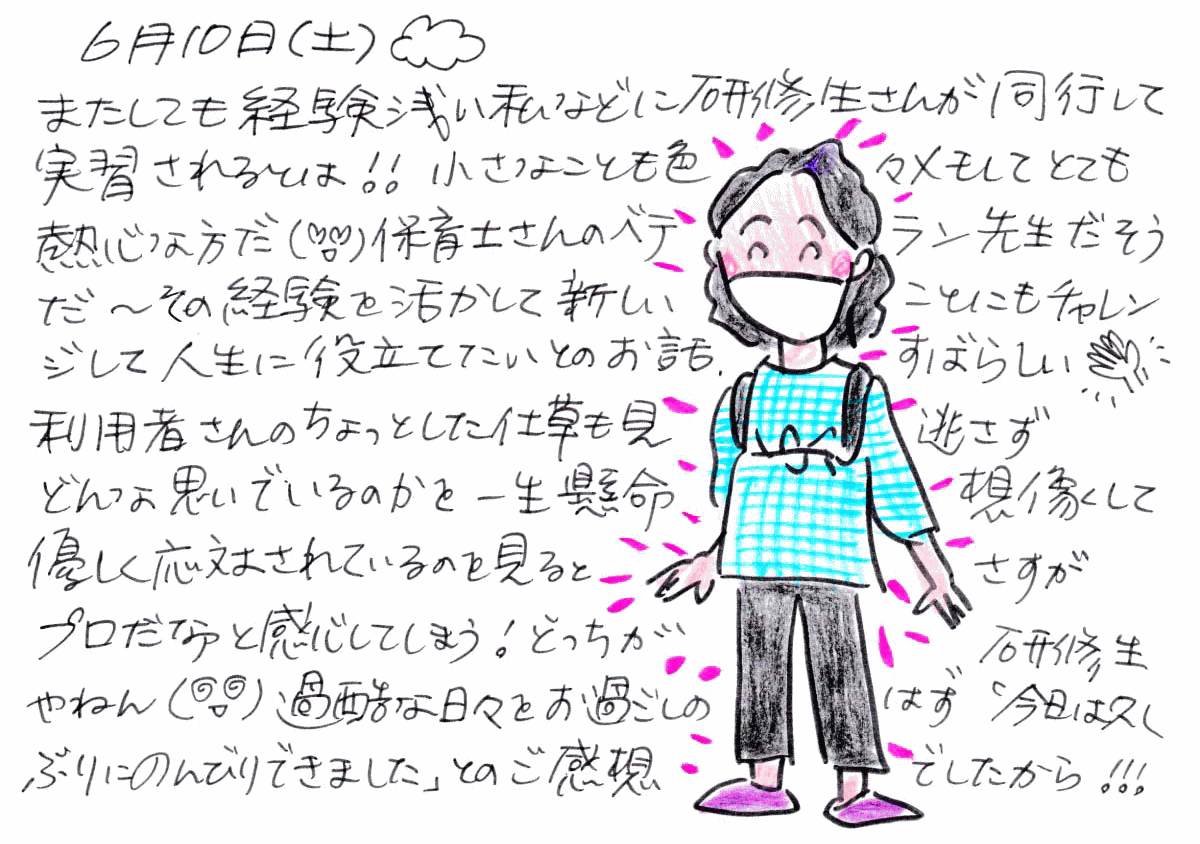 6月10日(土)
またしても経験浅い私などに研修生さんが同行して
実習されるとは!!小さなことも色々メモしてとても
熱心な方だ()保育士さんのベテラン先生だそう
だ〜その経験を活かして新しいことにもチャレン
ジして人生に役立てたいとのお話。すばらしい
利用者さんのちょっとした仕草も見逃さず
どんな思いでいるのかを一生懸命想像して
優しく応対されているのを見るとさすが
プロだなぁと感心してしまう!どっちが研修生
やねん()過酷な日々をお過ごしのはず「今日は久し
ぶりにのんびりできました」とのご感想でしたから!!!